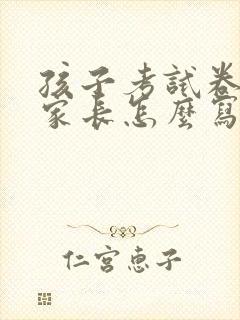 孩子考試卷
家長怎麼寫
仁宮惠子